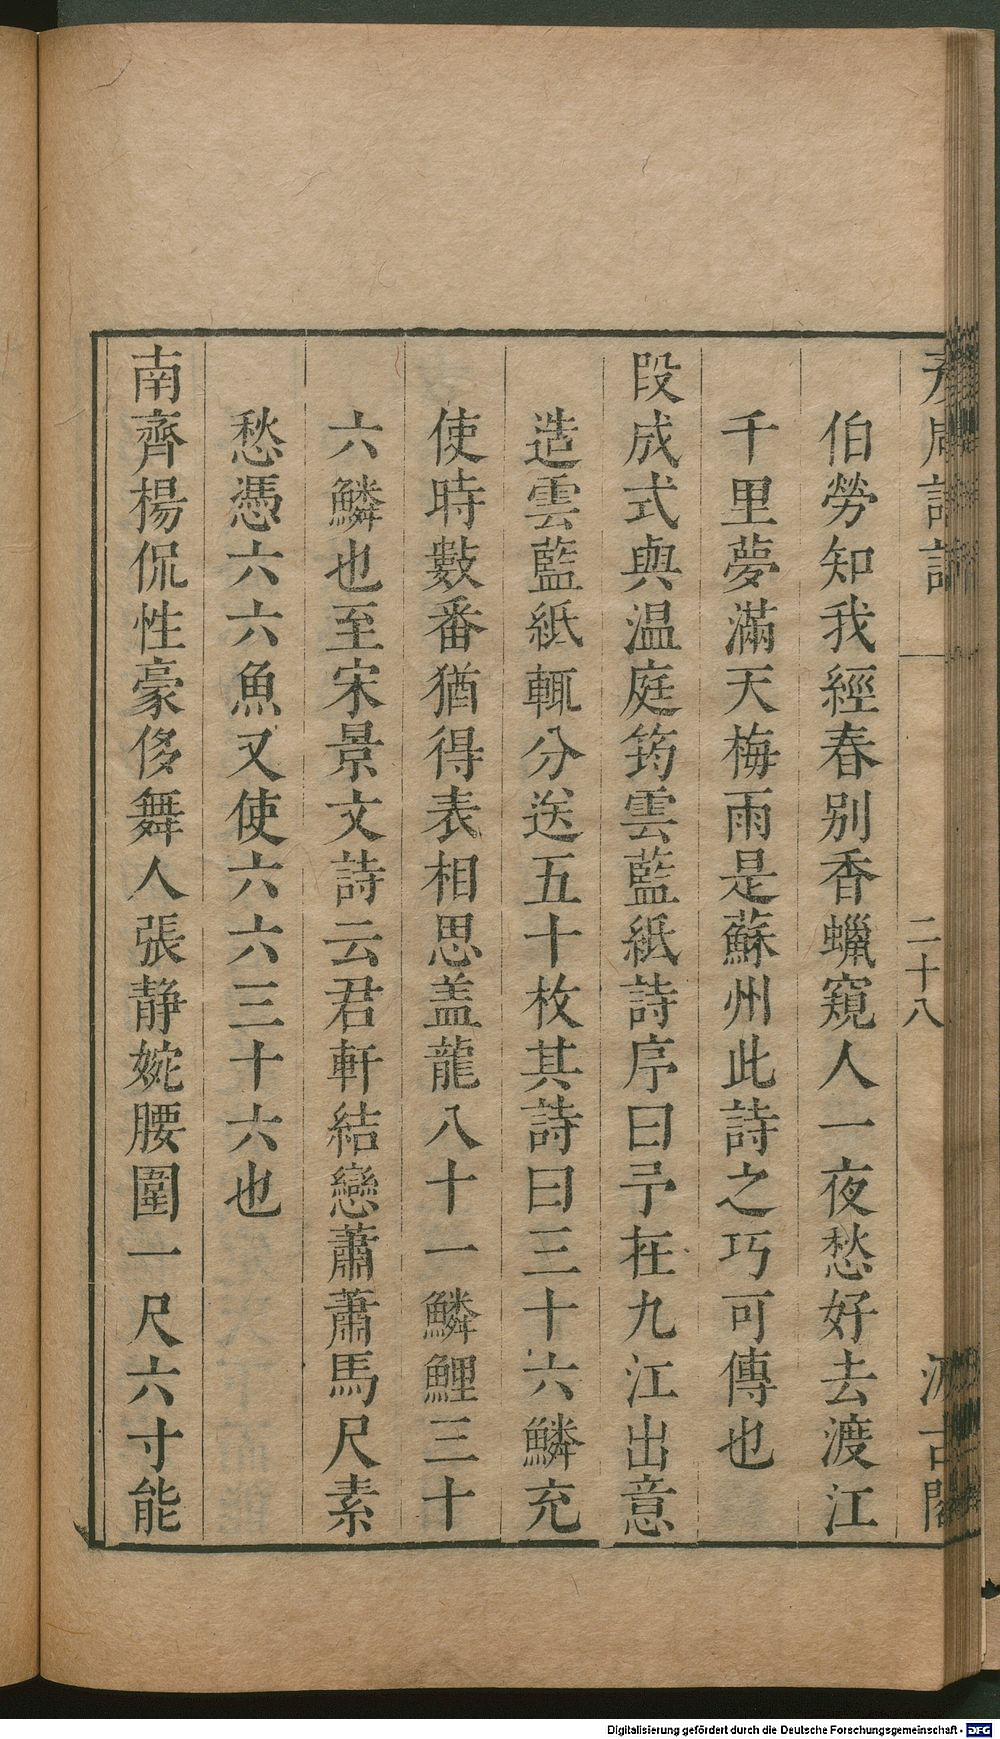 彦周詩話 二十八 汲古閣
伯勞知我經春别香蠟窺人一夜愁好去渡江
千里夢滿天梅雨是蘇州此詩之巧可傳也
段成式與温庭筠雲藍紙詩序曰予在九江出意
造雲藍紙輒分送五十枚其詩曰三十六鱗充
使時數番猶得表相思盖龍八十一鱗鯉三十
六鱗也至宋景文詩云君軒結戀蕭蕭馬尺素
愁憑六六魚又使六六三十六也
南齊楊侃性豪侈舞人張静婉腰圍一尺六寸能
Digitalisierung gefördert durch die Deutsche Forschungsgemeinschaft - DFG